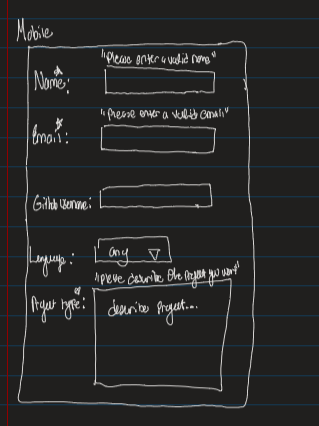 Mobile
"Please enter a valid name"
Name*:
"please enter a valid email"
Email*:
Github username:
Language:
any
"please describe the project you want"
Project type*:
describe project...